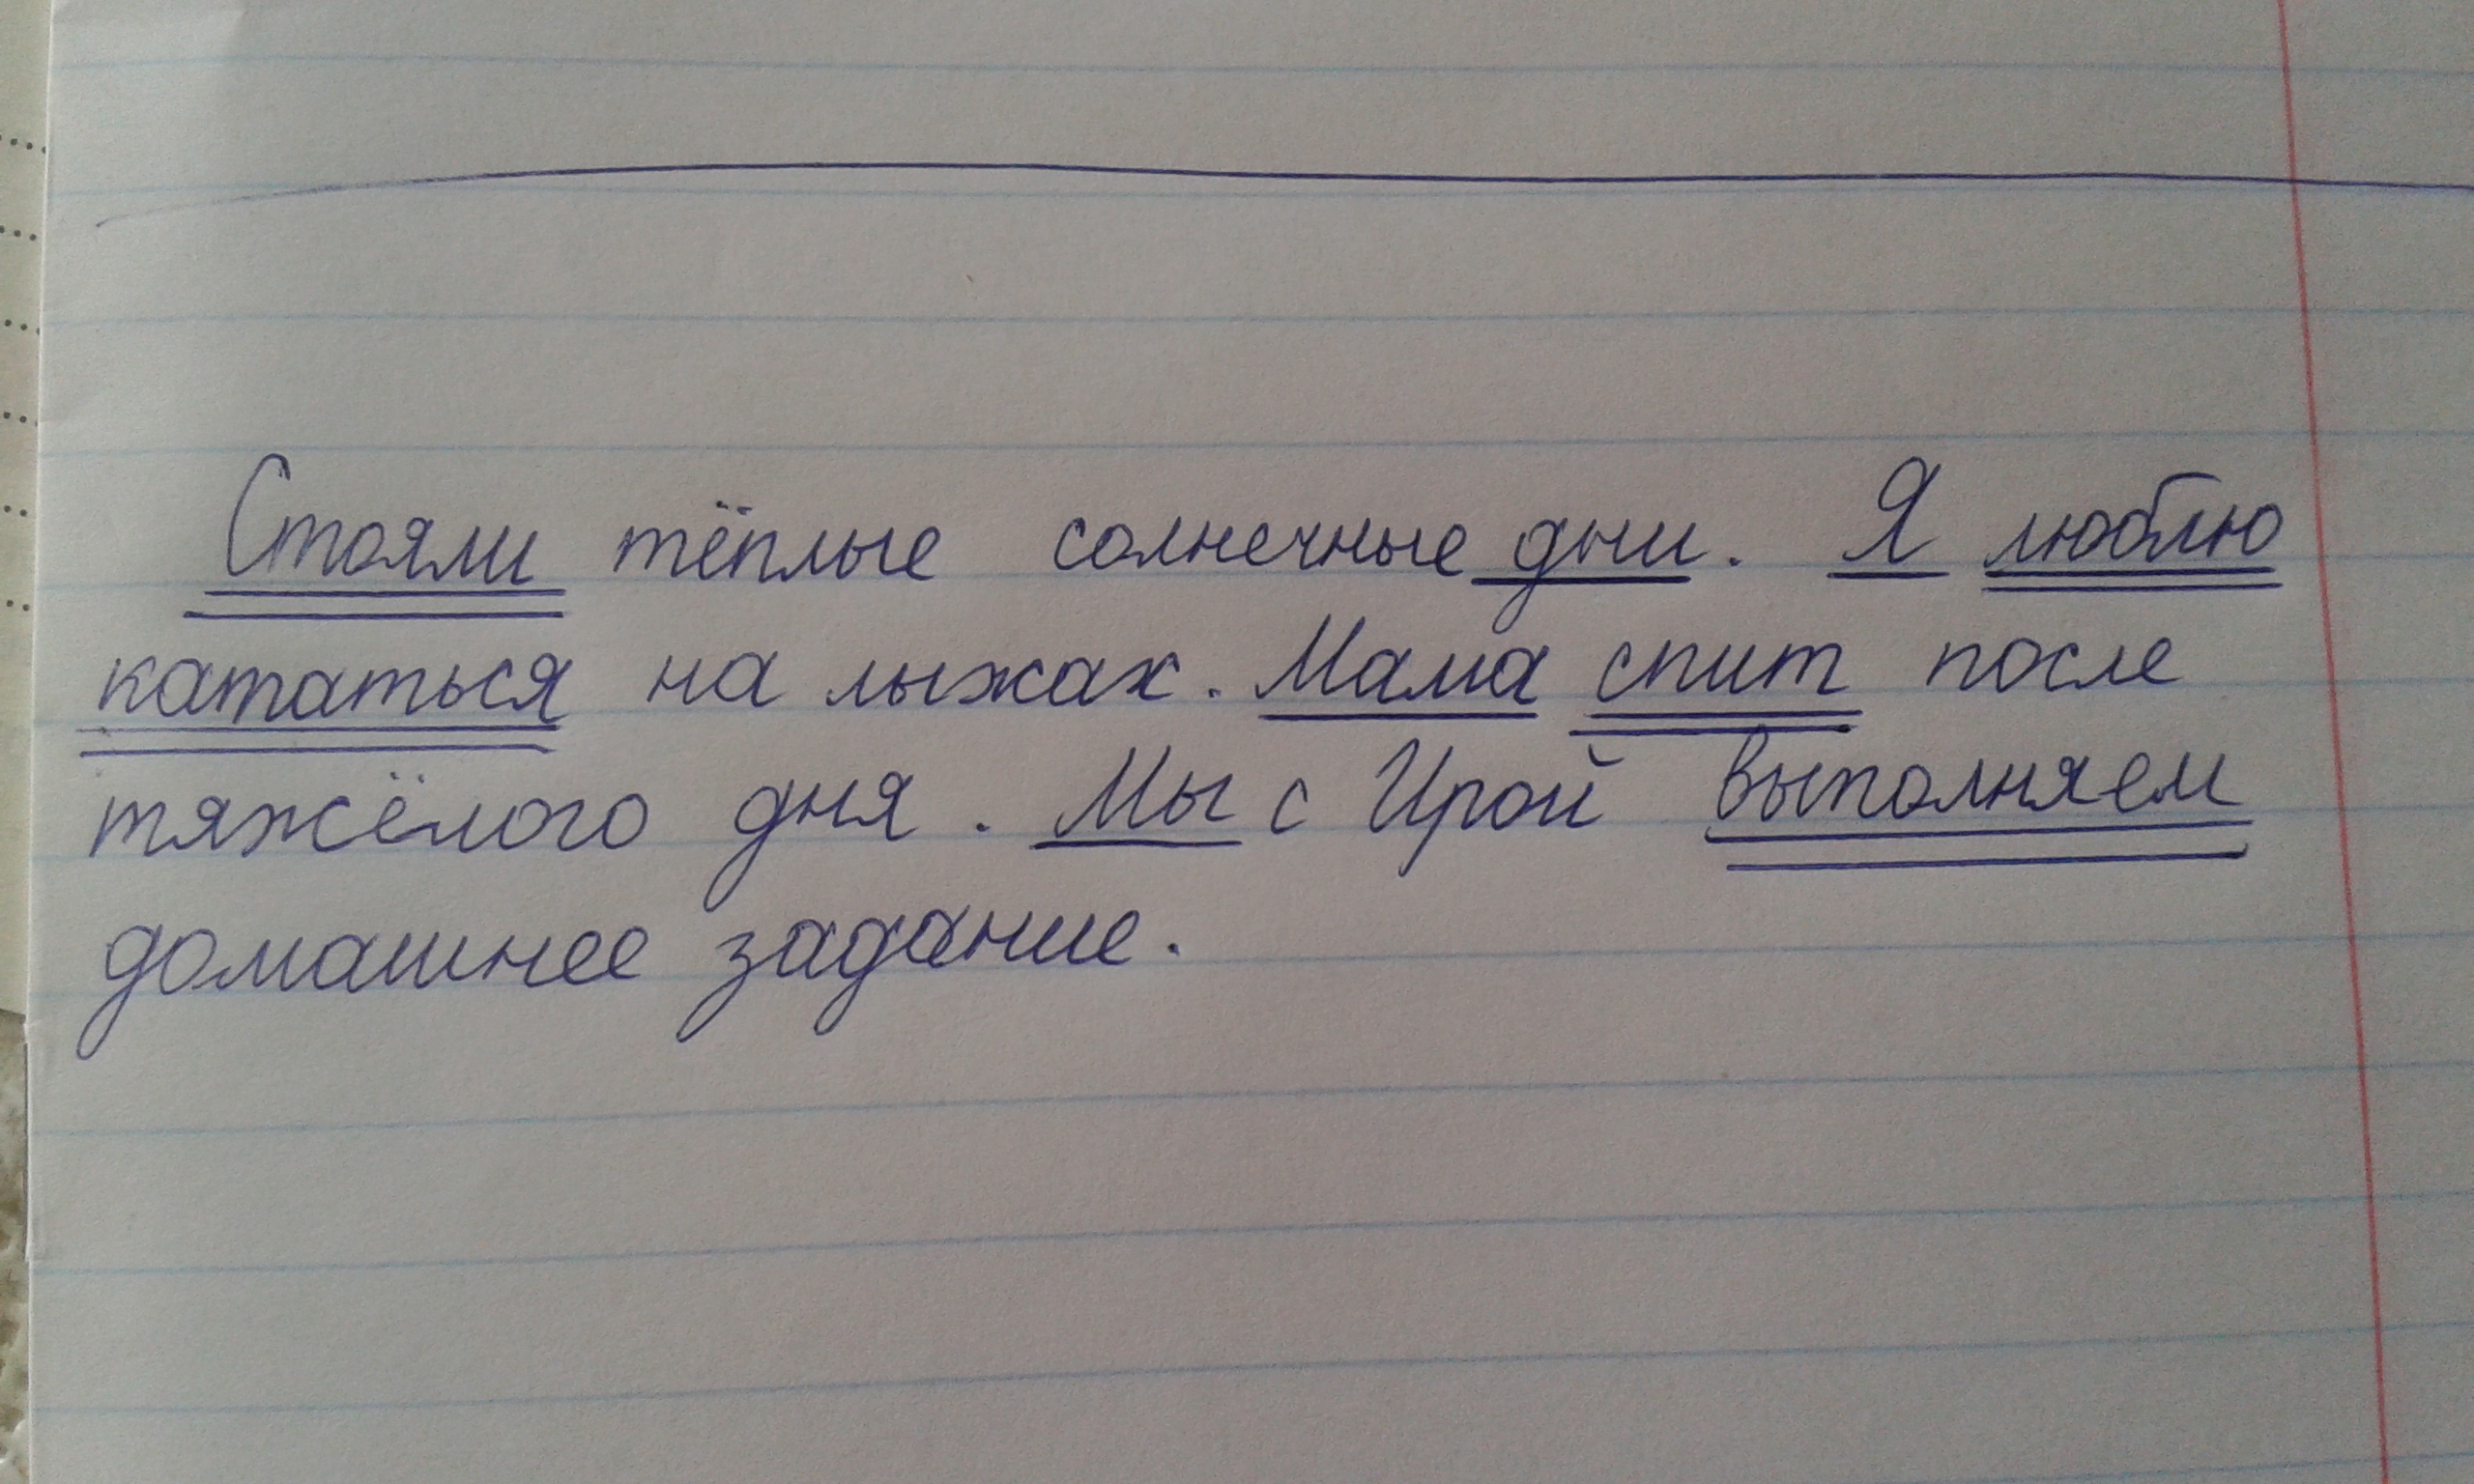 Стояли тёплые солнечные дни. Я люблю
кататься на лыжах. Мама спит после
тяжёлого дня. Мы с Ирой выполняем
домашнее задание.